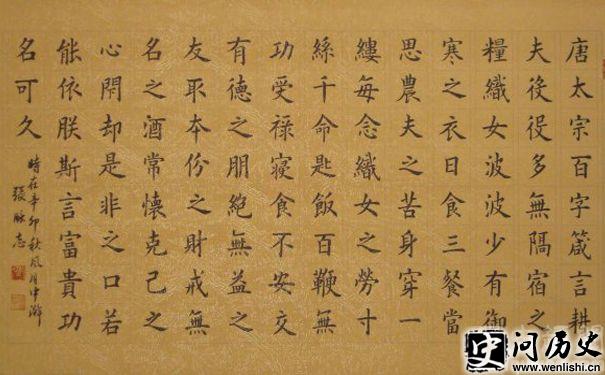 唐太宗百字箴言耕
夫後役多無隔宿之
糧織女波波少有御
寒之衣日食三餐當
思農夫之苦身穿一
縷每念織女之勞寸
絲千命匙飯百鞭無
功受祿寢食不安交
有德之朋絕無益之
友取本份之財戒無
名之酒常懷克己之
心閑却是非之口若
能依朕斯言富貴功
名可久
時在辛卯秋風月中澣
張志
问历史
www.wenlishi.com